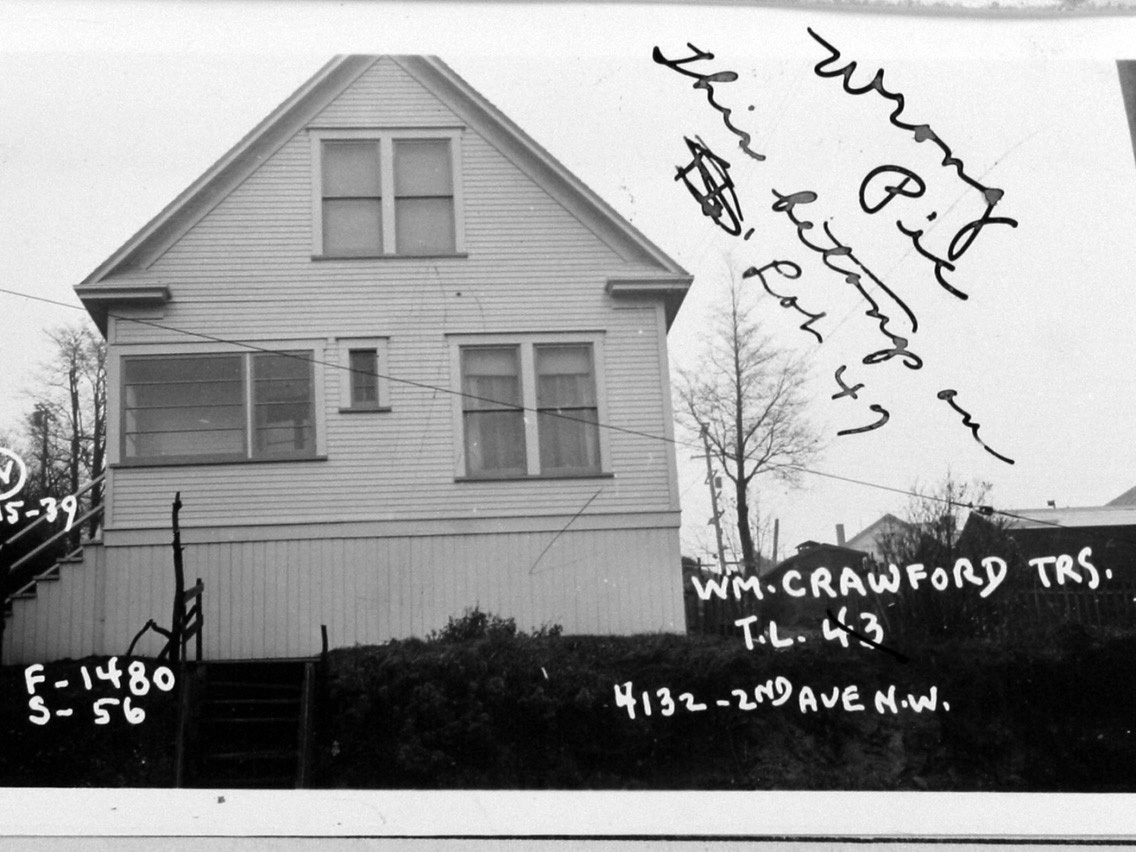 Wrong Pic
This belongs on
for 47
N
15-39
WM. CRAWFORD TRS.
T.L. 43
F-1480
S- 56
4132-2ND AVE N.W.